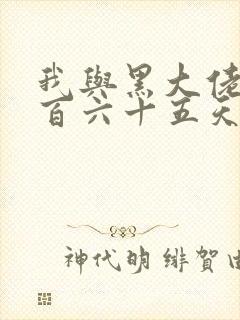 我與黑大佬
百六十五天
神代明 緋賀由